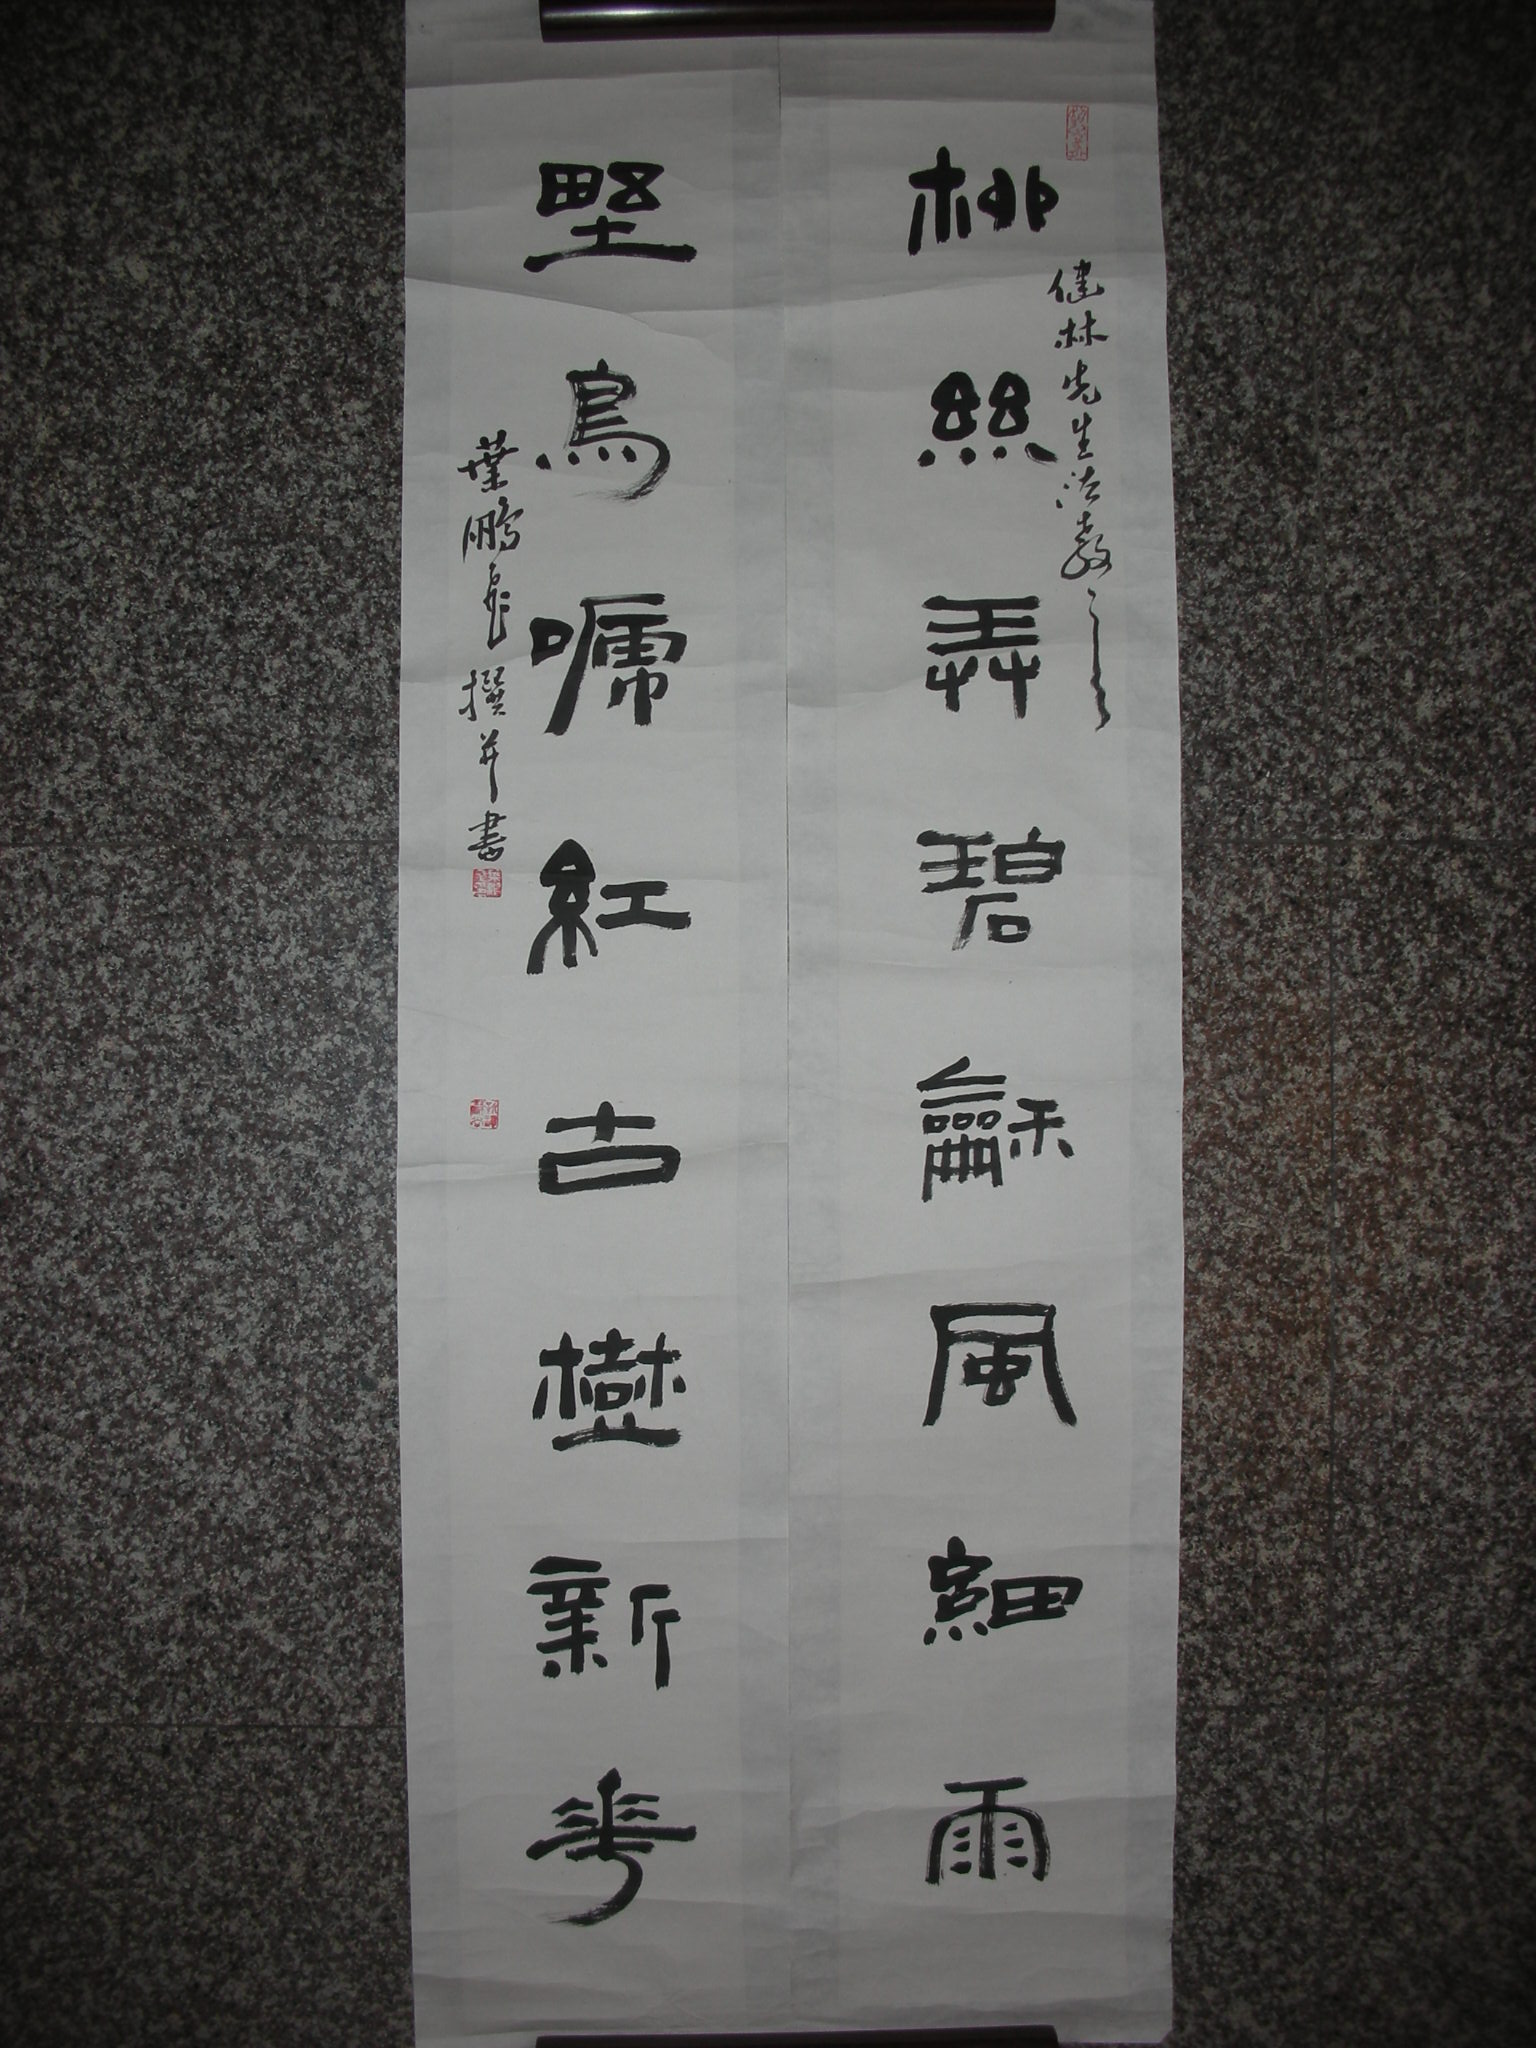 柳絲弄碧龢風細雨
健林先生法教之
野鳥嗁紅古樹新華
葉鵬飛撰并書